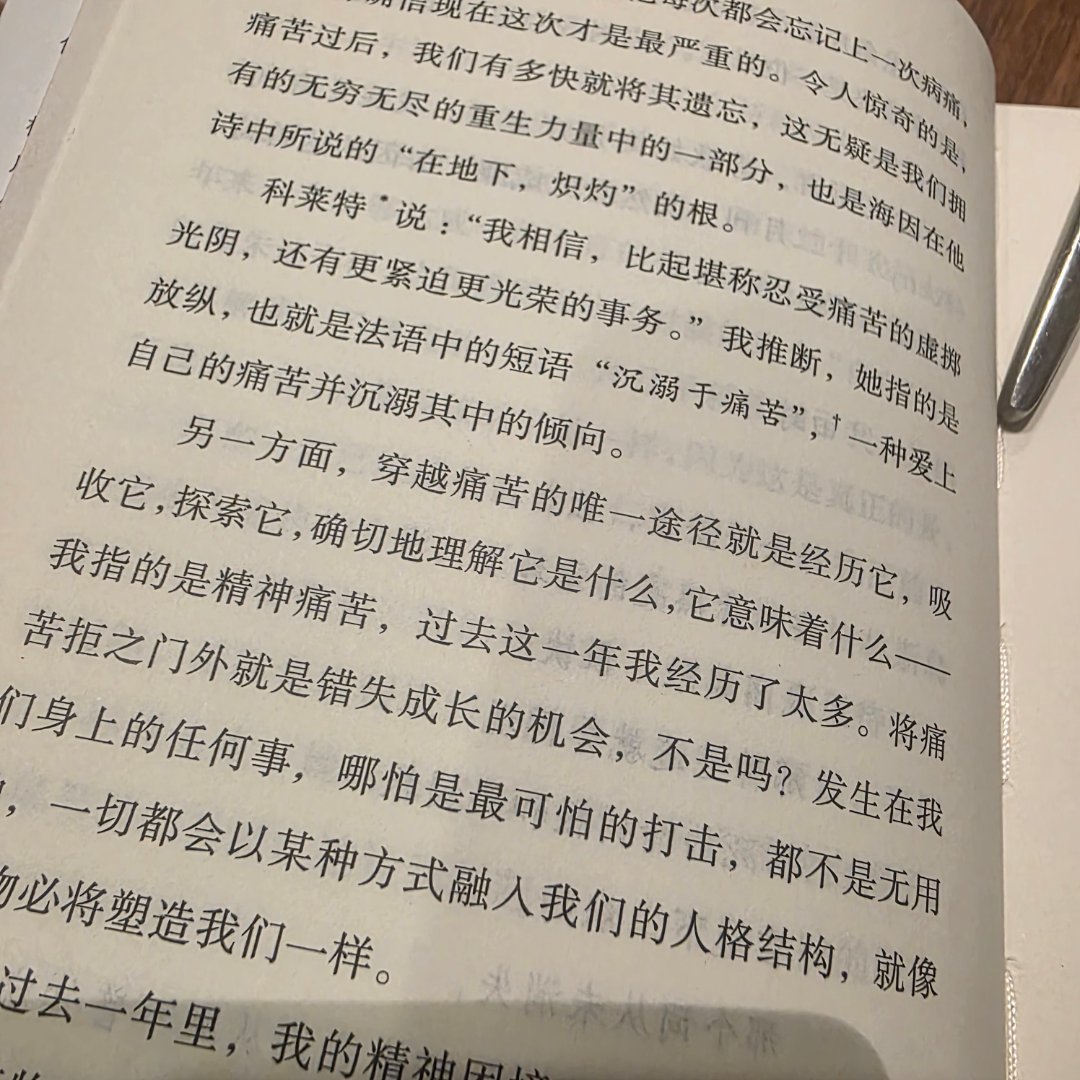 每次都会忘记上一次病痛，
确信现在这次才是最严重的。令人惊奇的是，
痛苦过后，我们有多快就将其遗忘，这无疑是我们拥
有的无穷无尽的重生力量中的一部分，也是海因在他
诗中所说的“在地下，炽灼”的根。
科莱特*说：“我相信，比起堪称忍受痛苦的虚掷
光阴，还有更紧迫更光荣的事务。”我推断，她指的是
放纵，也就是法语中的短语“沉溺于痛苦”，†一种爱上
自己的痛苦并沉溺其中的倾向。
另一方面，穿越痛苦的唯一途径就是经历它，吸
收它，探索它，确切地理解它是什么，它意味着什么——
我指的是精神痛苦，过去这一年我经历了太多。将痛
苦拒之门外就是错失成长的机会，不是吗？发生在我
们身上的任何事，哪怕是最可怕的打击，都不是无用
，一切都会以某种方式融入我们的人格结构，就像
物必将塑造我们一样。
过去一年里，我的精神困